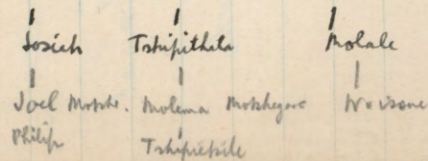 Josiah Tshipithata Molale
Joel Motshe. Molema Motshegare
Philip Tshipietsile